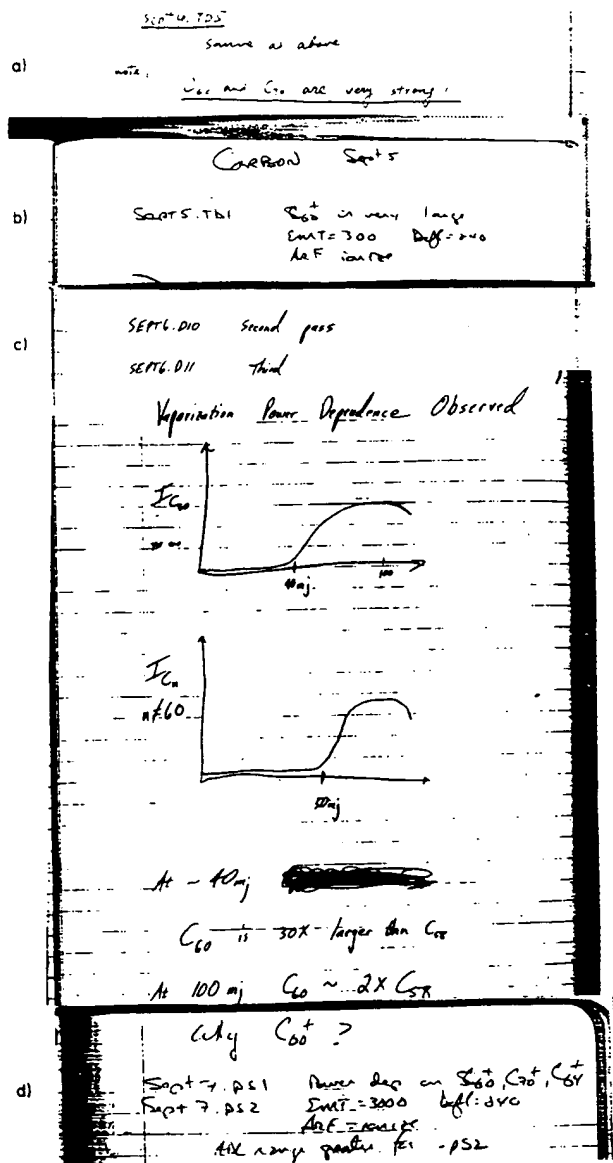 a)
Sept 4. TD5
Same as above
note:
C₆₀ and C₇₀ are very strong!
CARBON Sept 5
b)
SEPT5.TD1 C₆₀⁺ is very large
EMT=300 Defl=240
ArF ionize
c)
SEPT6.D10 Second pass
SEPT6.D11 Third
Vaporization Power Dependence Observed
I C₆₀
40mj. 100
I Cₙ
n≠60
50mj
At ~ 40mj
C₆₀ is 30X larger than C₅₈
At 100 mj C₆₀ ~ 2X C₅₈
Why C₆₀⁺ ?
d)
Sept 7.PS1 Power dep on C₆₀⁺, C₇₀⁺, C₆₄⁺
Sept 7.PS2 EMT=3000 Defl=240
ArF = ionize
range greater for .PS2